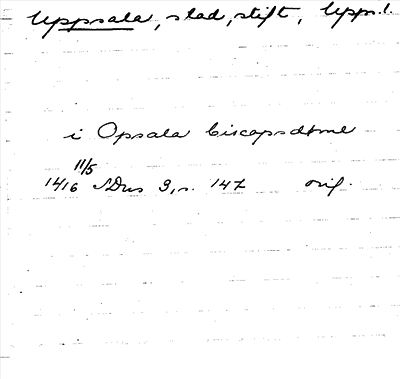 Uppsala, stad, stift, Upps.l.
i Opsala biscopsdøme
11/5
1416 SDns 3, s. 147 orig.